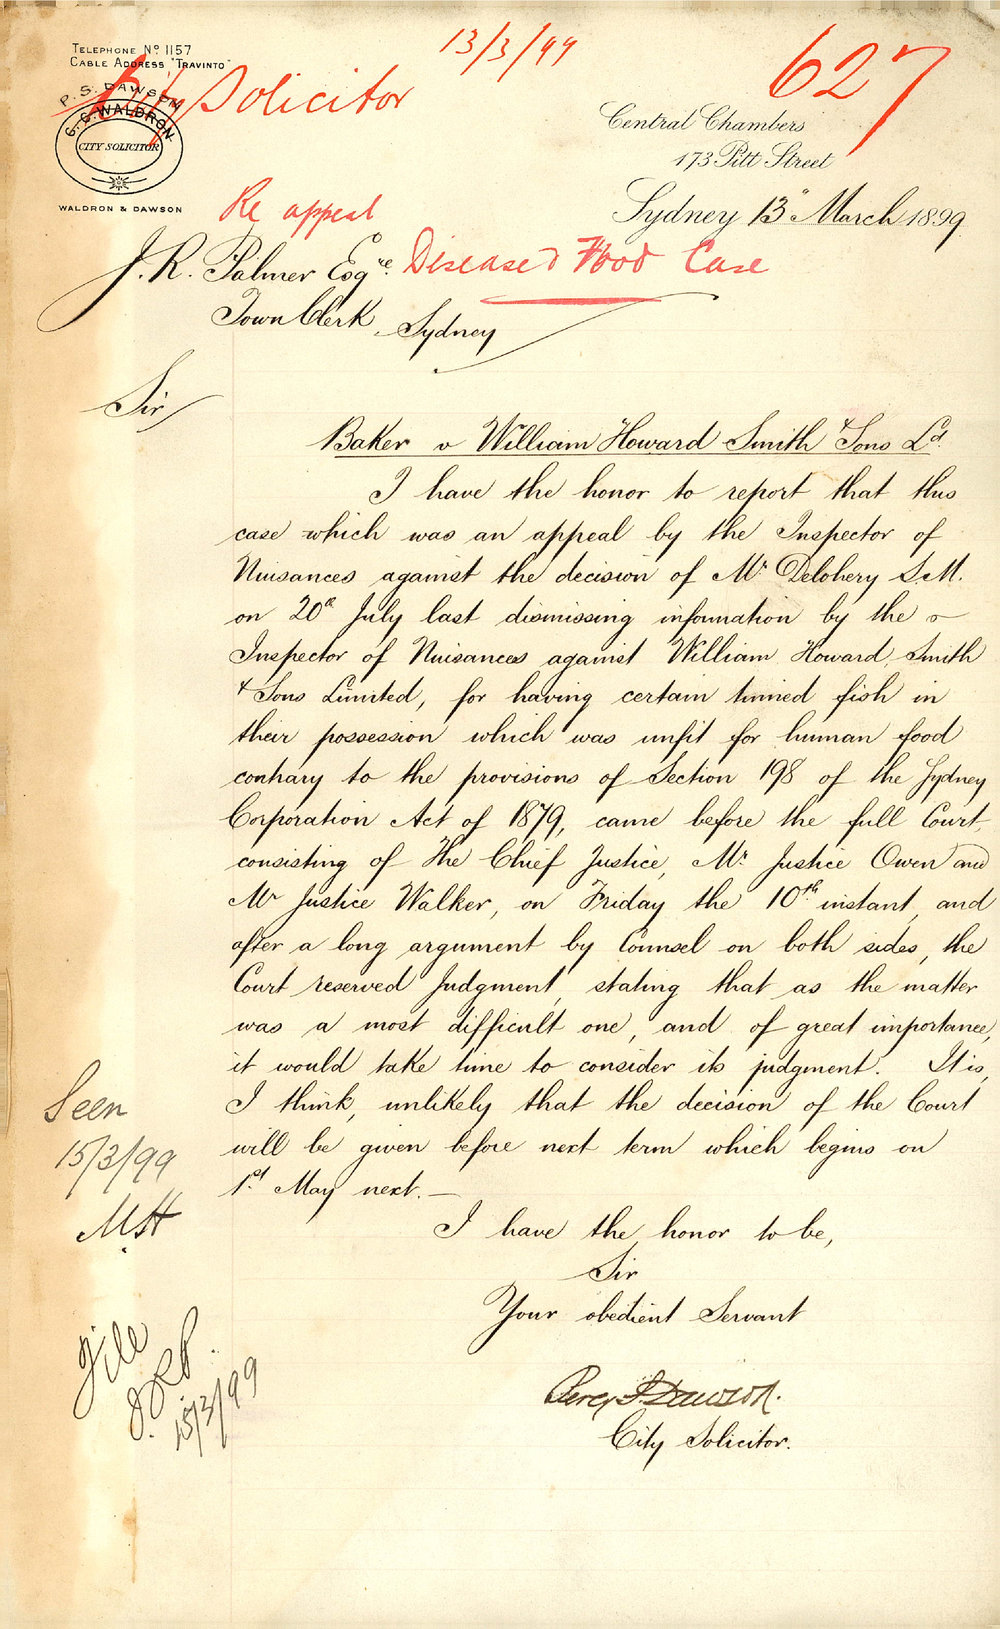 TELEPHONE No 1157
CABLE ADDRESS "TRAVINTO"
13/3/99
627
City Solicitor
P. S. DAWSON
G. S. WALDRON
CITY SOLICITOR
WALDRON & DAWSON
Central Chambers
173 Pitt Street
Sydney 13th March 1899
Re appeal
Diseased Food Case
J. R. Palmer Esqre
Town Clerk, Sydney
Sir
Baker v William Howard Smith & Sons Ld.
I have the honor to report that this
case which was an appeal by the Inspector of
Nuisances against the decision of Mr Delohery S.M.
on 20th July last dismissing information by the
Inspector of Nuisances against William Howard Smith
& Sons Limited, for having certain tinned fish in
their possession which was unfit for human food
contrary to the provisions of Section 198 of the Sydney
Corporation Act of 1879, came before the full Court,
consisting of The Chief Justice, Mr Justice Owen and
Mr Justice Walker, on Friday the 10th instant, and
after a long argument by Counsel on both sides, the
Court reserved Judgment, stating that as the matter
was a most difficult one, and of great importance,
it would take time to consider its judgment. It is,
I think, unlikely that the decision of the Court
will be given before next term which begins on
1st May next.—
I have the honor to be,
Sir
Your obedient Servant
Percy S Dawson.
City Solicitor.
Seen
15/3/99
MH
File
J.R.P.
15/3/99